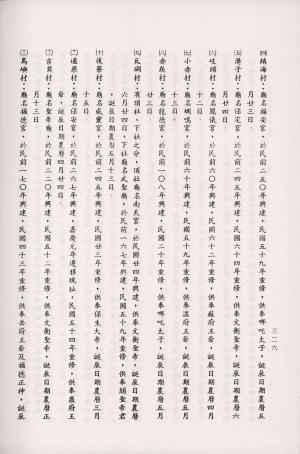 ㈣鎮海村：廟名福安宮，於民前二五０年興建，民國五十二年重修，供奉哪吒太子，誕辰日期農曆五
月廿三日。
㈤港子村：廟名保定宮，於民前二四０年興建，民國六十四年重修，供奉文衡聖帝，誕辰日期農曆六
月廿四日。
㈥岐頭村：廟名鳳儀宮，於民前六０年興建，民國六十二年重修，供奉蘇府王爺，誕辰日期農曆四月
十二日。
㈦小赤村：廟名，於民前六０年興建，民國五十九年重修，供奉溫府王爺，誕辰日期農曆五月
十三日。
㈧赤崁村：廟名龍德宮，於民前一０八年興建，民國二十年重修，供奉哪吒太子，誕辰日期農曆五月
廿三日。
㈨瓦硐村：有頂社、下社之分，頂社廟名南天宮，於民國廿四年興建，供奉文衡聖帝，誕辰日期農曆
六月廿四日，下社廟名武聖廟，於民前一六七年興建，民國五十九年重修，供奉關聖帝君
，誕辰日期農曆五月十三日。
㈩後寮村：廟名威靈宮，於民前二四五年興建，民國廿三年重修，供奉保生大帝，誕辰日期農曆三月
十五日。
通梁村：廟名保安宮，於民前二六七年興建，嘉慶元年遷移現址，民國五十四年重修，供奉康府王
爺，誕辰日期農曆四月廿四日。
吉貝村：廟名聖帝廟，於民前五十二年興建，民國五十二年重修，供奉文衡聖帝，誕辰日期農曆正
月十三日
鳥嶼村：廟名福德宮，於民前一七０年興建，民國四十三年重修，供奉岳府王爺及福德正神，誕辰
三二六